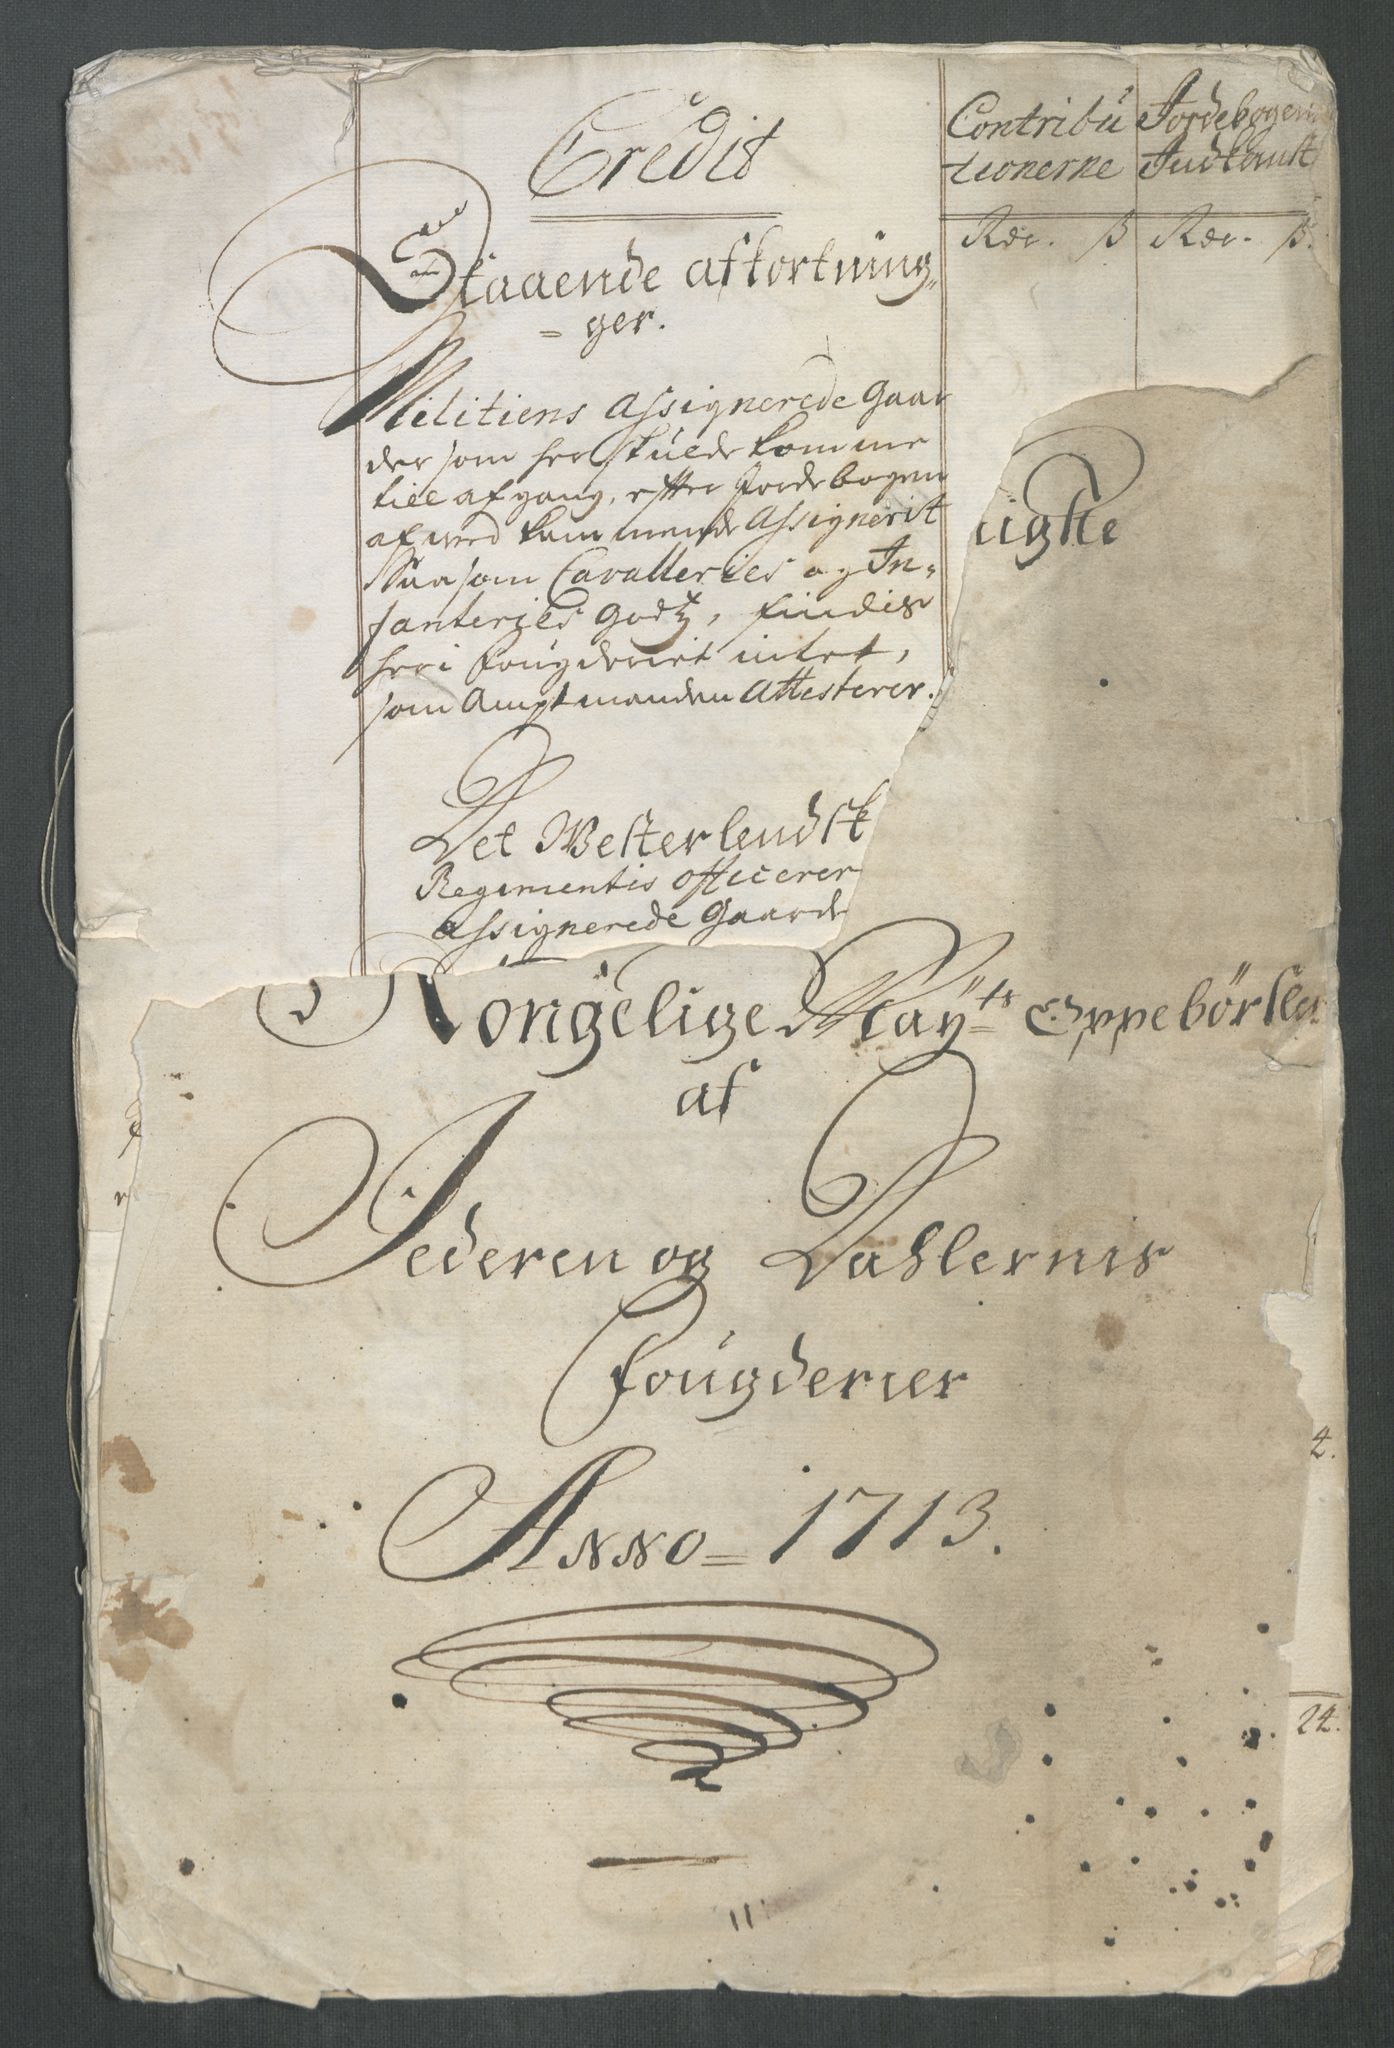 Credit
Contribu Jordebogens
tionerne Indkomst
Rdr. ß Rdr. ß.
Staaende afkortning
= ger.
Militiens Assignerede Gaar
der som her skulde komme
till afgang, efter Jordebogen
af ved kommende Assignerit
Saasom Cavalleries og In=
fanteries Godtz, findis
her i fougderiet intet,
som Amptmanden Attesterer.
Det Westerlendsk
Regimentis officerer
assignerede Gaarde
Kongelige Mayts Oppebørsler
af
Jederen og Dahlernis
fougderier
Anno = 1713.
2.
24.